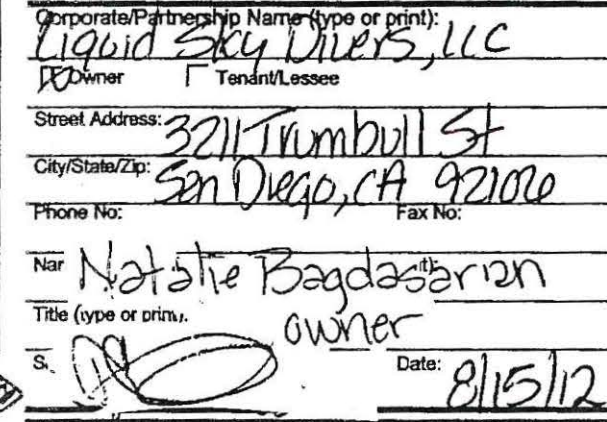 Corporate/Partnership Name (type or print):
Liquid Sky Divers, LLC
Owner Tenant/Lessee
Street Address: 3211 Trumbull St
City/State/Zip: San Diego, CA 92106
Phone No: Fax No:
Nar Natalie Bagdasarian t):
Title (type or print).
owner
S. Date: 8/15/12